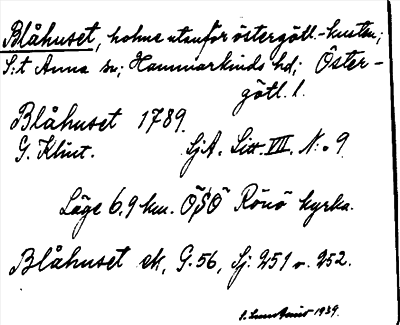 Blåhuset, holme utanför östergötl.-kusten;
S:t Anna sn; Hammarkinds hd; Öster-
götl. l.
Blåhuset 1789.
G. Klint. SjA. Litt. VIII. N:o 9
Läge 6,9 km. ÖSÖ Rönö kyrka.
Blåhuset ek, G. 56, Sj. 251 o. 252.
1939.